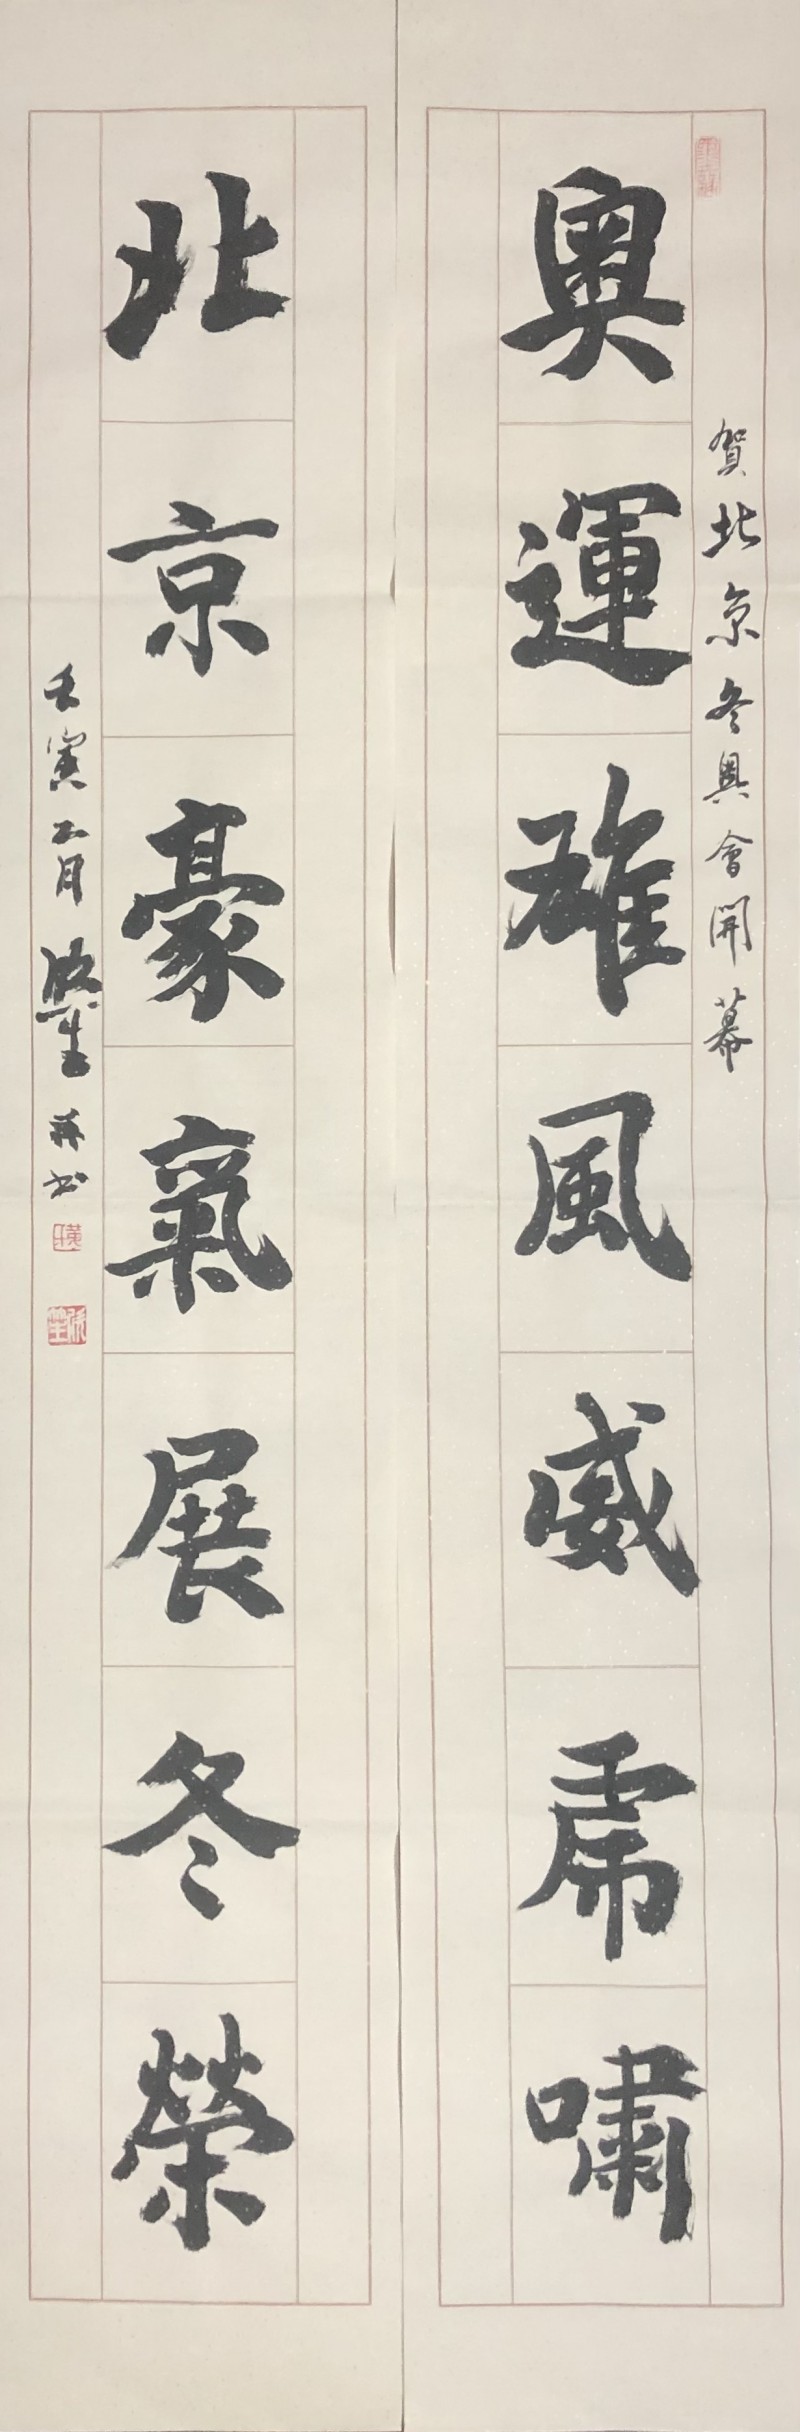 賀北京冬奥會開幕
奥運雄風威虎嘯
北京豪氣展冬榮
壬寅正月
書